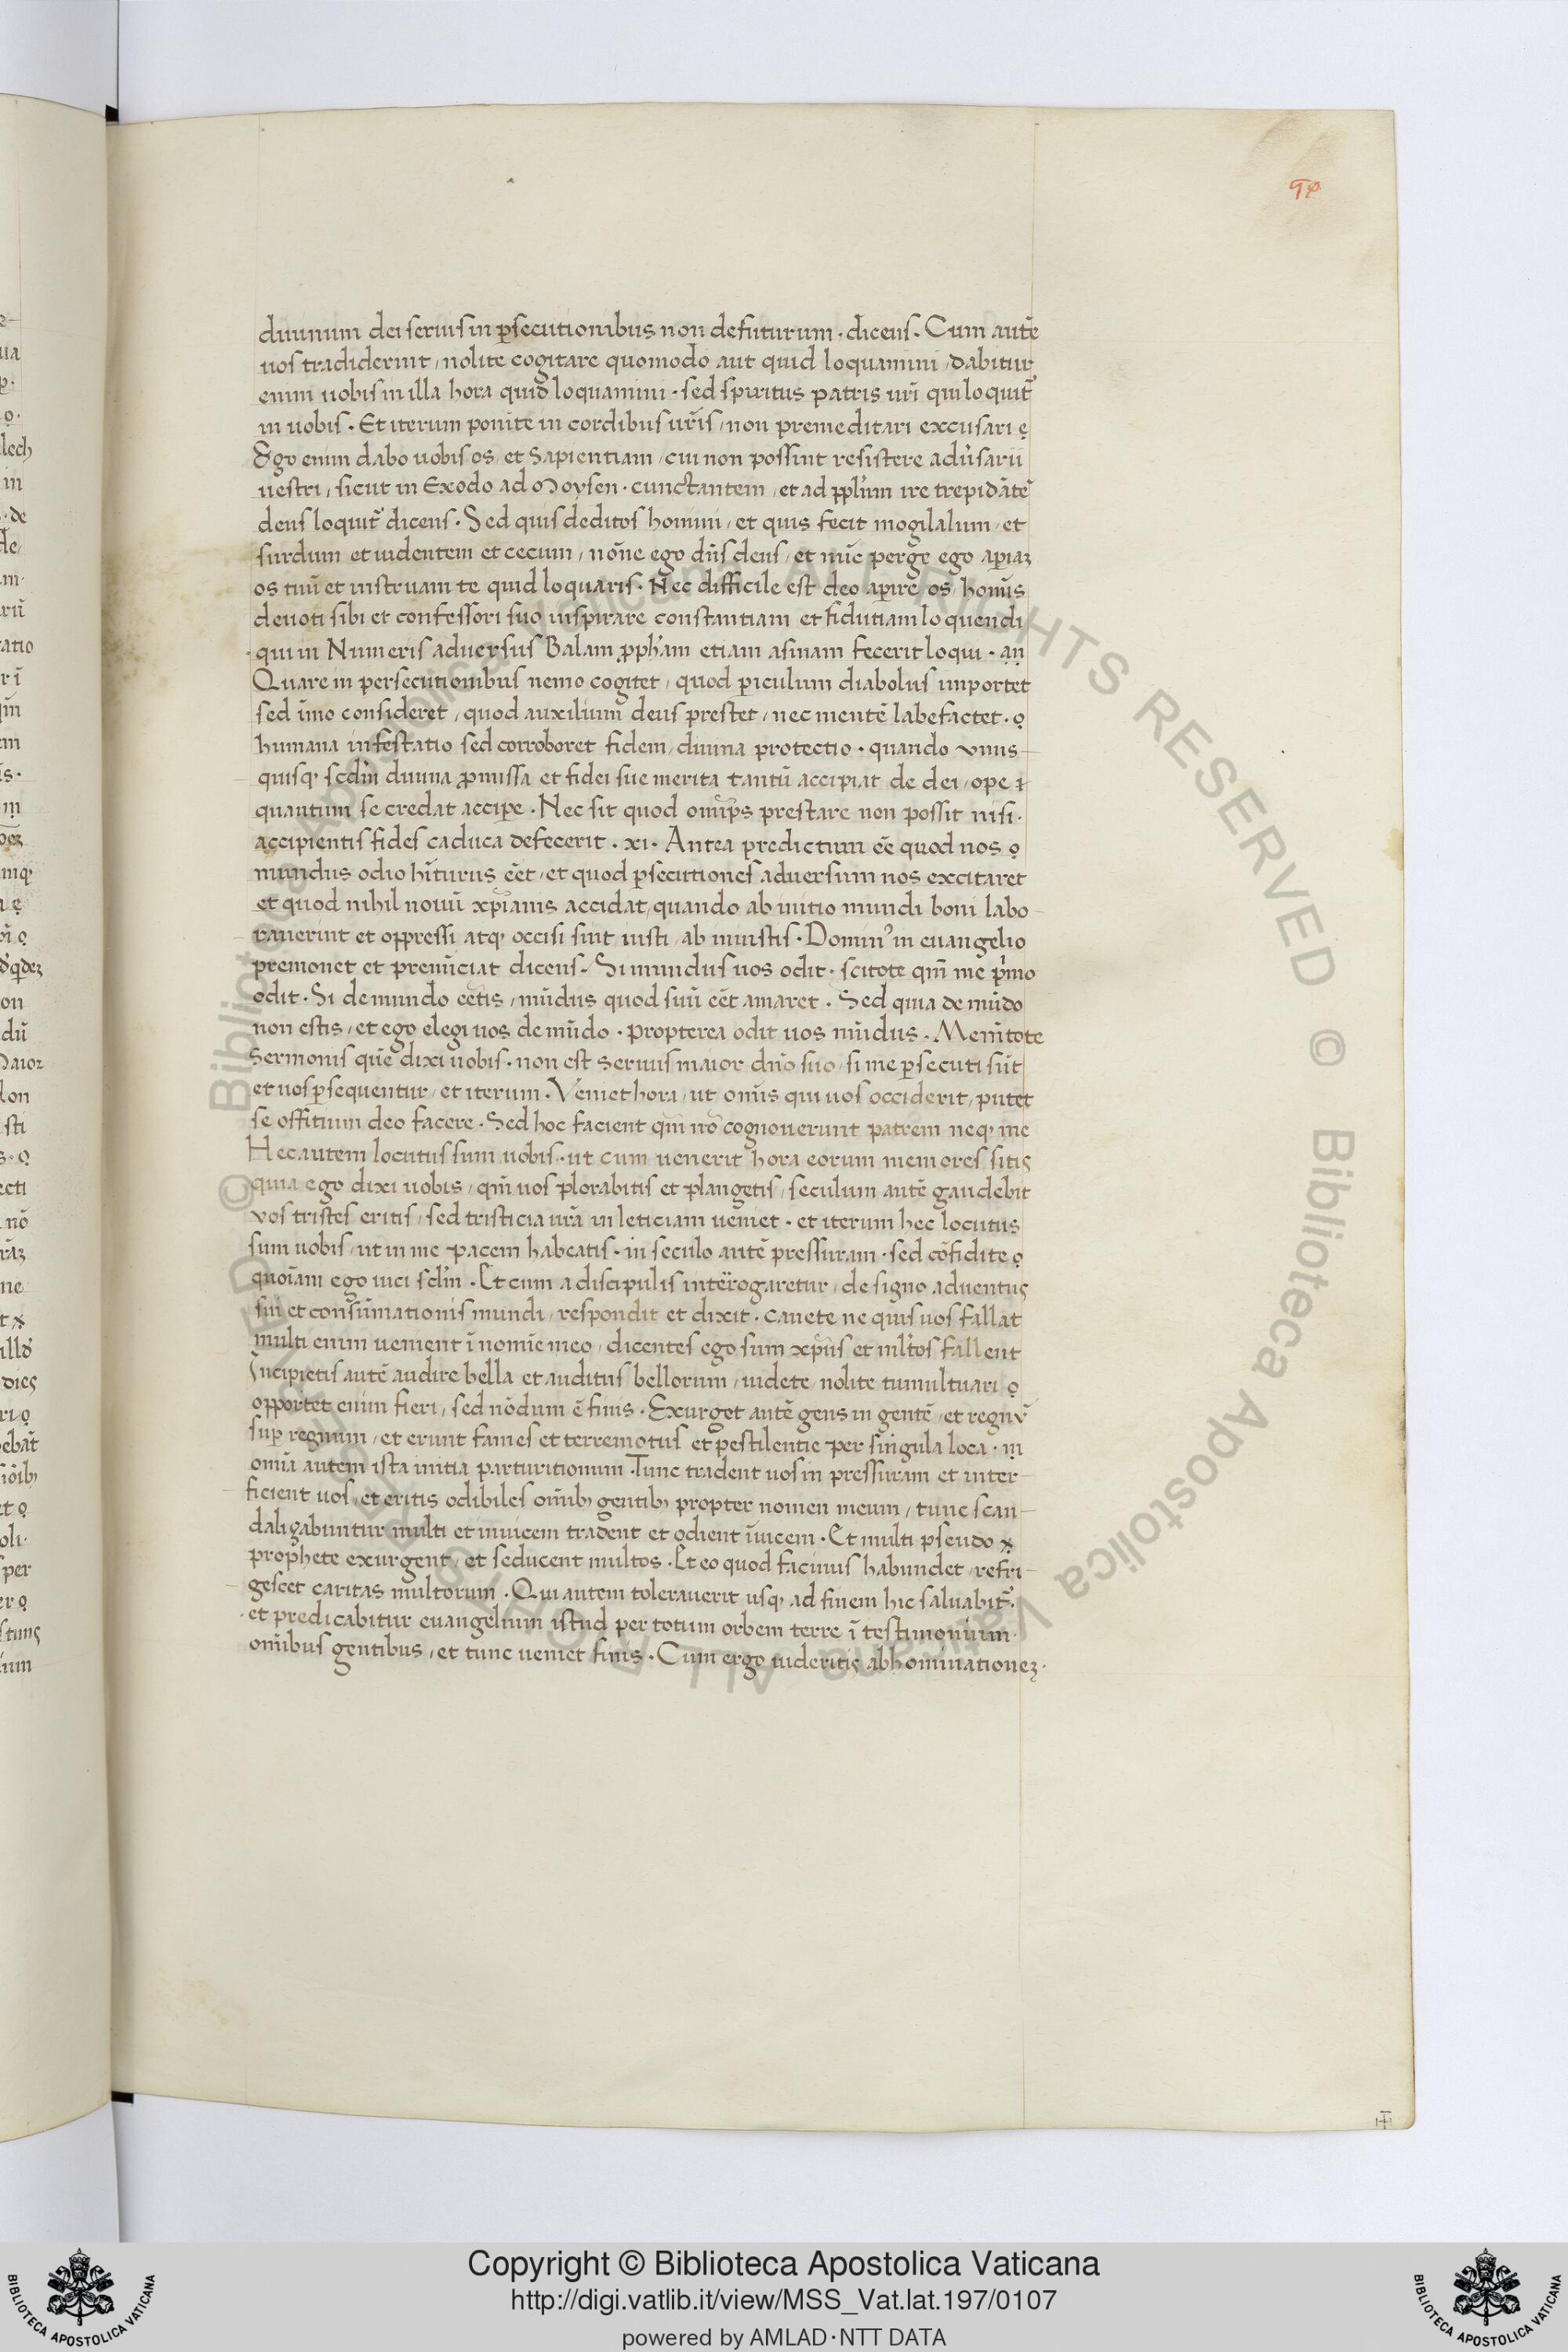 diuinum dei seruis in ꝑsecutionibus non defuturum · dicens · Cum autē
uos tradiderint / nolite cogitare quomodo aut quid loquamini / dabitur
enim uobis in illa hora quid loquamini · sed spiritus patris ur̄i qui loquit᷑
in uobis · Et iterum ponite in cordibus ur̄is / non premeditari excusari
Ego enim dabo uobis os et sapientiam / cui non possint resistere adu᷑sarii
uestri / sicut in Exodo ad Moysen · cunctantem / et ad ppl'um ire trepidātē
deus loquit᷑ dicens · Sed quis dedit os homini / et quis fecit mogilalum / et
surdum et uidentem et cecum / nōne ego dn̄s deus / et nūc perge ego apiaꝫ
os tuū et instruam te quid loquaris · Nec difficile est deo aꝑire os hoīnis
deuoti sibi et confessori suo inspirare constantiam et fidutiam loquendi
qui in Numeris aduersus Balam ꝓph'am etiam asinam fecerit loqui ·
Quare in persecutionibus nemo cogitet / quod ꝑiculum diabolus importet
sed īmo consideret / quod auxilium deus prestet / nec mentē labefactet ·
humana infestatio sed corroboret fidem / diuina protectio · quando vnus
quisqꝫ scd'm diuina ꝓmissa et fidei sue merita tantū accipiat de dei / ope
quantum se credat accipe · Nec sit quod omīps prestare non possit nisi ·
accipientis fides caduca defecerit · xi · Antea predictum eē quod nos
mundus odio hīturus eēt / et quod ꝑsecutiones aduersum nos excitaret
et quod nihil nouū xp̄ianis accidat / quando ab initio mundi boni labo
rauerint et oppressi atqꝫ occisi sint iusti / ab iniustis · Dominꝰ in euangelio
premonet et prenūciat dicens · Si mundus uos odit · scitote qm̄ me pⁱmo
odit · Si de mundo eētis / mūdus quod suū eēt amaret · Sed quia de mūdo
non estis / et ego elegi uos de mūdo · propterea odit uos mūdus · Memētote
sermonis quē dixi uobis · non est seruus maior dn̄o suo / si me ꝑsecuti sūt
et uos ꝑsequentur / et iterum · Veniet hora / ut omīs qui uos occiderit / putet
se offitium deo facere · Sed hoc facient qm̄ nō cognouerunt patrem neqꝫ me
Hec autem locutus sum uobis · ut cum uenerit hora eorum memores sitis
quia ego dixi uobis / qm̄ uos plorabitis et plangetis / seculum autē gaudebit
vos tristes eritis / sed tristicia ur̄a in leticiam ueniet · et iterum hec locutus
sum uobis / ut in me pacem habeatis · in seculo autē pressuram · sed cōfidite
quoīam ego uici scl'm · Et cum a discipulis interrogaretur / de signo aduentus
sui et consūmationis mundi / respondit et dixit · cauete ne quis uos fallat
multi enim uenient ī nomīe meo / dicentes ego sum xp̄us et ml'tos fallent
Incipietis autē audire bella et auditus bellorum / uidete / nolite tumultuari
opportet enim fieri / sed nōdum ē finis · Exurget autē gens in gentē / et regnū
suꝑ regnum / et erunt fames et terremotus et pestilentie per singula loca ·
omīa autem ista initia parturitionum · Tunc tradent uos in pressuram et inter
ficient uos / et eritis odibiles omībꝫ gentibꝫ propter nomen meum / tunc scan
daligabuntur multi et inuicem tradent et odient īuicem · Et multi pseudo
prophete exurgent / et seducent multos · Et eo quod facinus habundet / refri
gescet caritas multorum · Qui autem tolerauerit usqꝫ ad finem hic saluabit᷑ ·
et predicabitur euangelium istud per totum orbem terre ī testimonium ·
omībus gentibus / et tunc ueniet finis · Cum ergo uideritis abhominationeꝫ ·
Copyright © Biblioteca Apostolica Vaticana
http://digi.vatlib.it/view/MSS_Vat.lat.197/0107
powered by AMLAD·NTT DATA
BIBLIOTECA APOSTOLICA VATICANA
BIBLIOTECA APOSTOLICA VATICANA